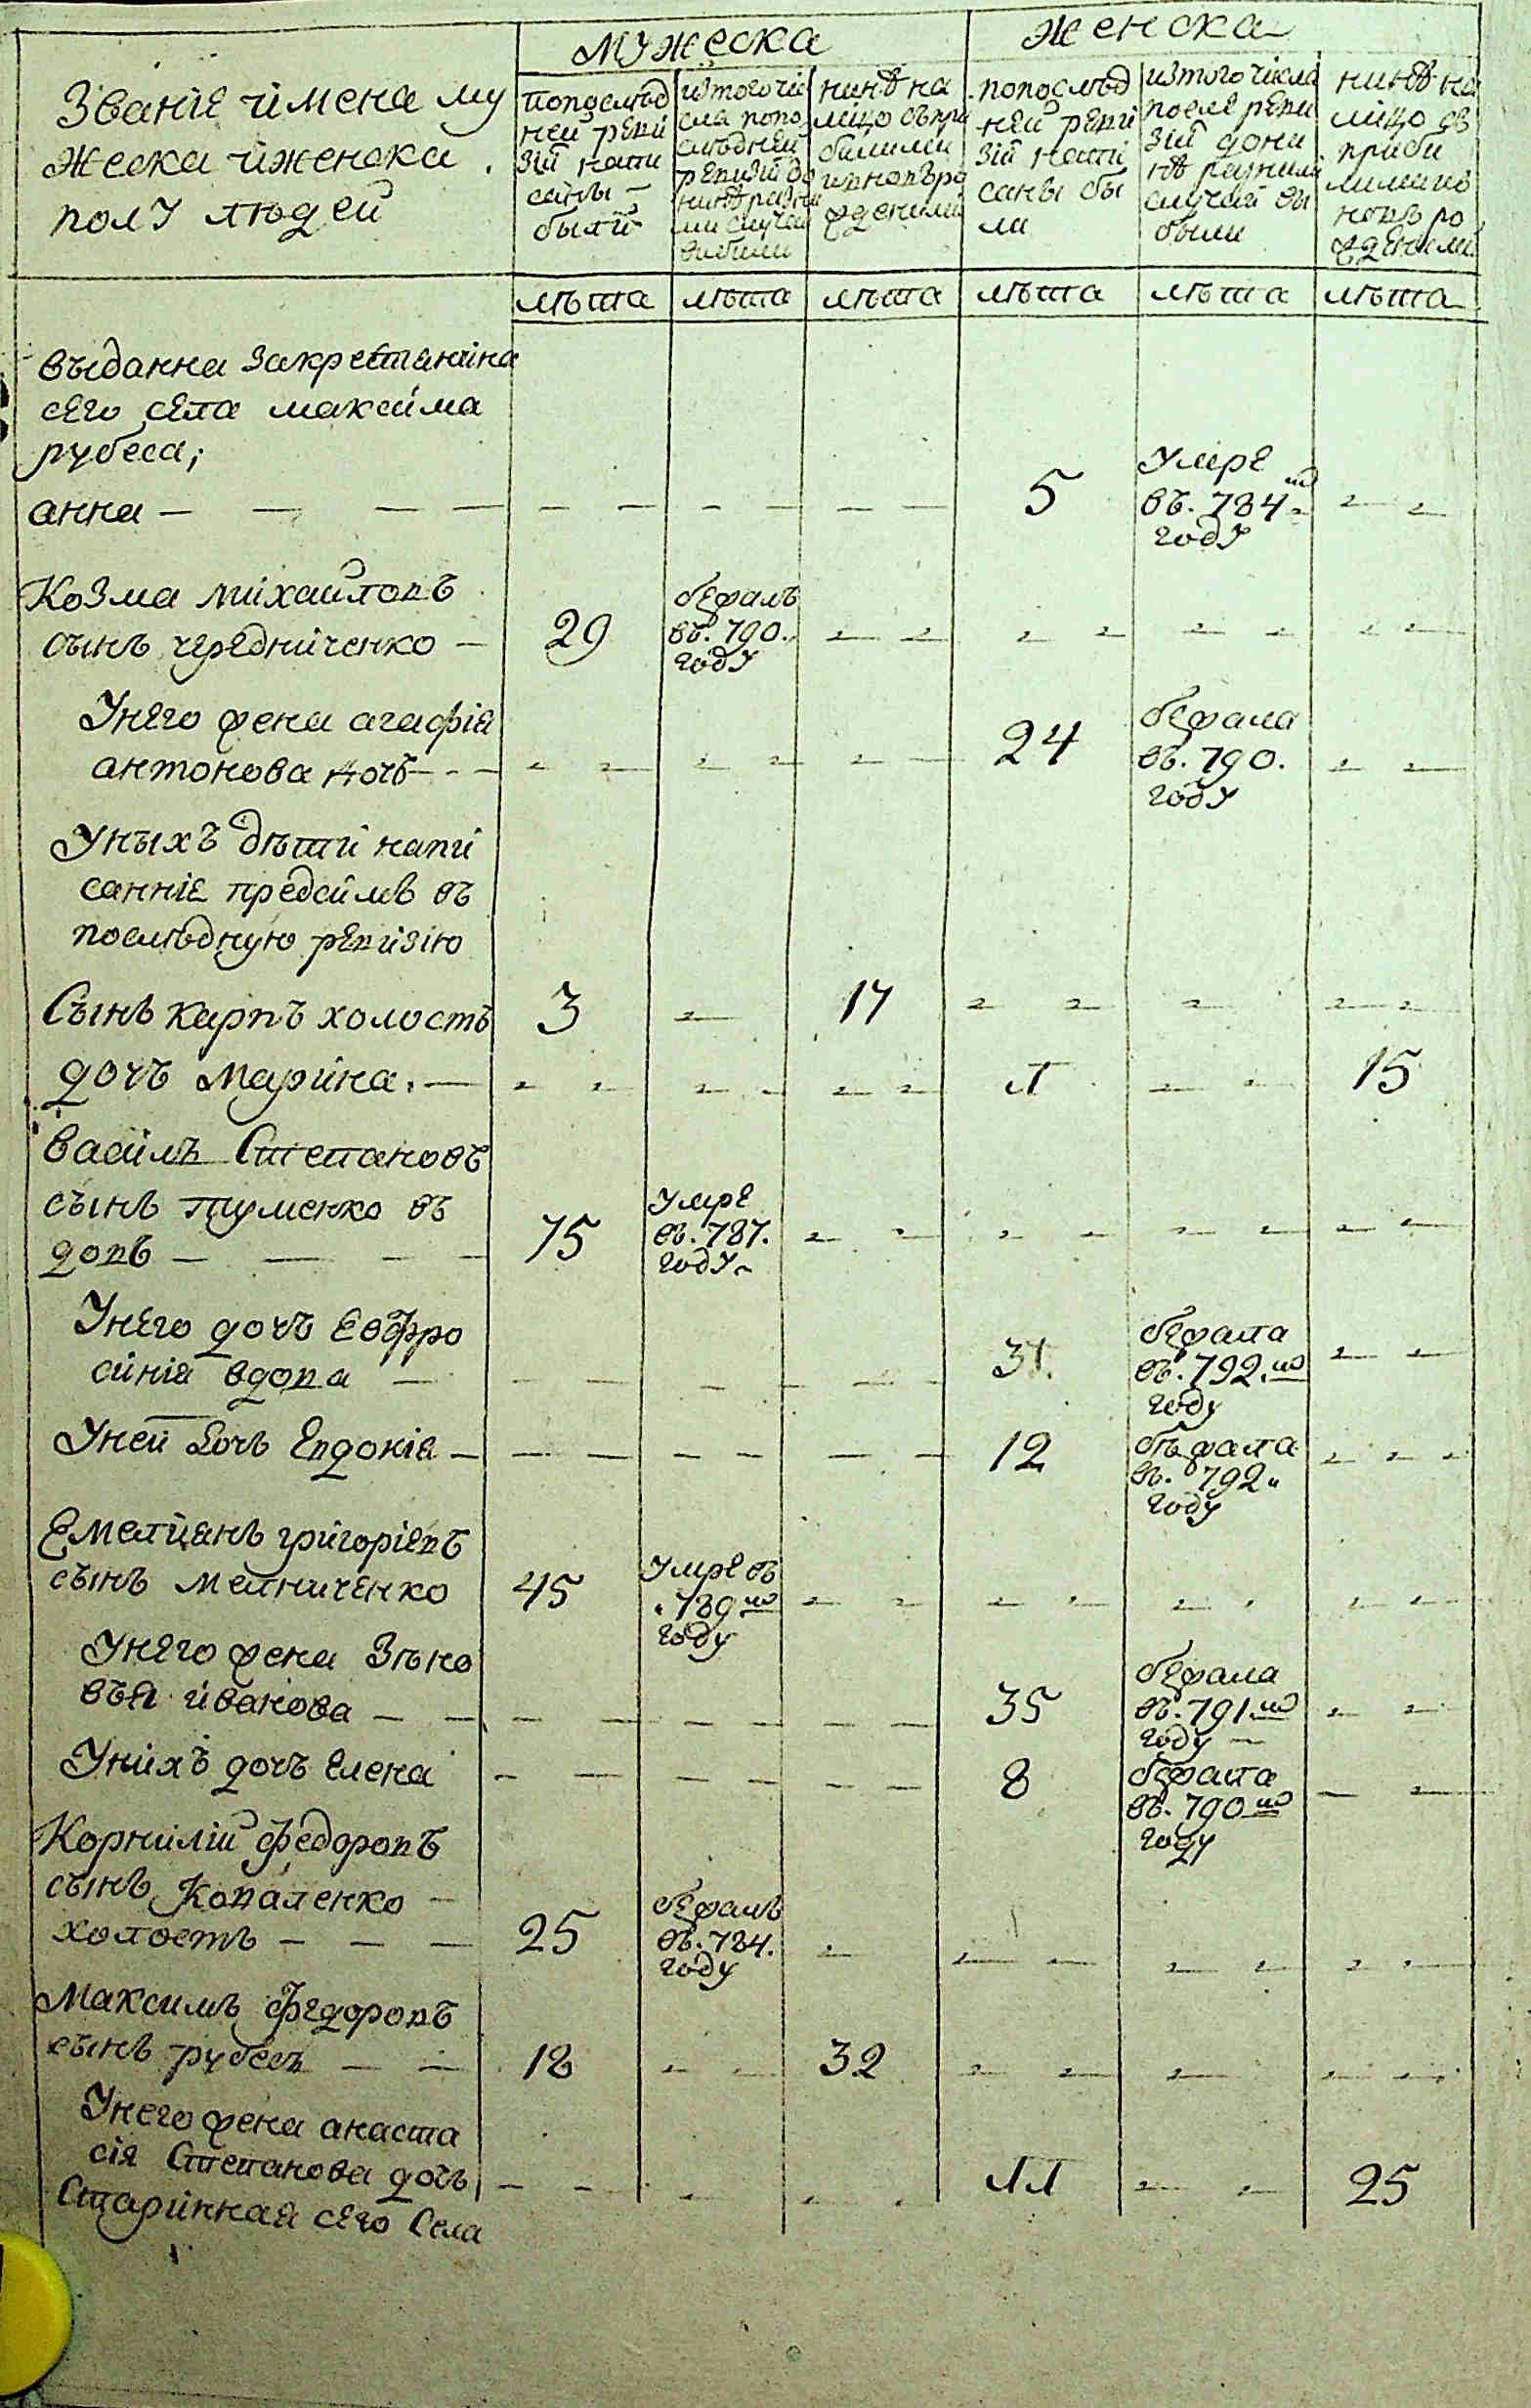 мужеска
женска
Званіе и имена му
жеска и женска
полу людей
попослѣд
ней реви
зіи напи
саны
были
изтого чис
ла попо
слѣдней
ревизіи до
нинѣ разны
ми случаи
выбыли
нинѣ на
лицо съпри
былими
ивновь ро
жденими
попослѣд
ней реви
зіи напи
саны бы
ли
изтого числа
после реви
зіи дони
нѣ разними
случаи вы
были
нинѣ на
лицо съ
приби
лими ив
новь ро
жденими
лѣта лѣта лѣта лѣта лѣта лѣта
выданна закрестянина
сего села максима
рубеса;
анна 5 умре въ.784 году
Козма михайловъ
сынъ чередниченко 29 бежалъ въ.790. году
Унего жена агафія
антонова дочь 24 бежала въ.790. году
Уныхъ дѣти напи
санніе предсимъ въ
послѣдную ревизію
Сынъ карпъ холостъ 3 17
дочь марина. 1 15
василь Степановъ
сынъ тиуменко въ
довъ 75 умре въ.787. году
Унего дочь Евфро
синія вдова 31. бежала въ.792.го году
Уней дочь Евдокія 12 бѣжала въ. 792 году
Емелиянъ григоріевъ
сынъ мелниченко 45 умре въ 789го году
Унего жена Зѣно
въя иванова 35 бежала въ.791.го году
Унихъ дочь елена 8 бежала въ.790го году
Корнилій федоровъ
сынъ Коваленко
холостъ 25 бежалъ въ.784. году
Максимъ федоровъ
сынъ рубесъ 18 32
Унего жена анаста
сія Степанова дочь 11 25
Старинная сего Села